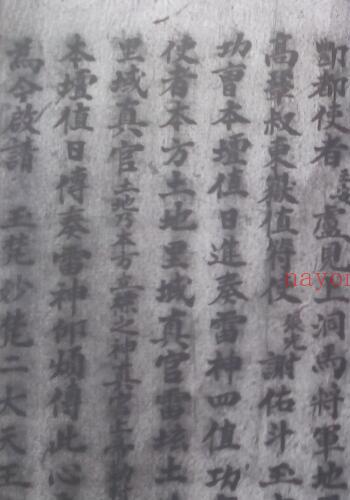 酆都使者 盧 見 洞馬將軍地
高翠叔東嶽值符使 謝佑斗玉
功曹本壇值日進奏雷神四值功
使者本方土地里域真官雷垓土
里域真官土地乃本方 之神真官
本壇值日傳奏雷神仰煩傳此心
為今啟請 玉梵 梵二大天王
nayo